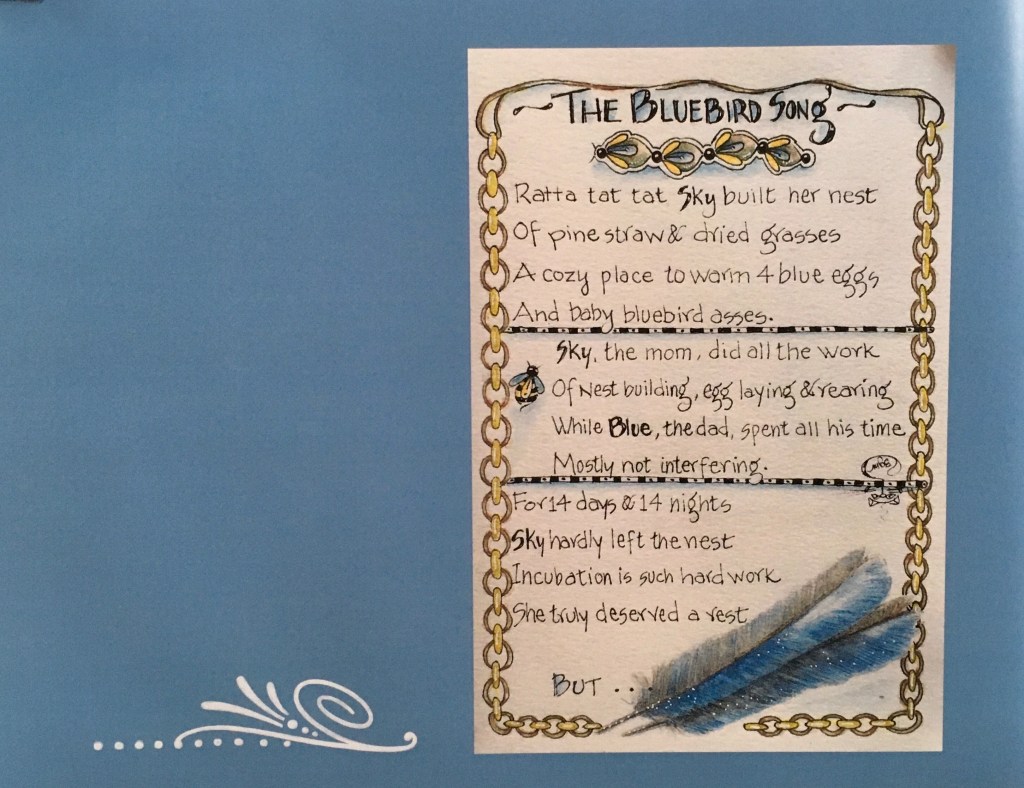 THE BLUEBIRD SONG
Ratta tat tat Sky built her nest
Of pine straw & dried grasses
A cozy place to warm 4 blue eggs
And baby bluebird asses.
Sky, the mom, did all the work
Of Nest building, egg laying & rearing
While Blue, the dad, spent all his time
Mostly not interfering.
For 14 days & 14 nights
Sky hardly left the nest
Incubation is such hard work
She truly deserved a rest
BUT ...